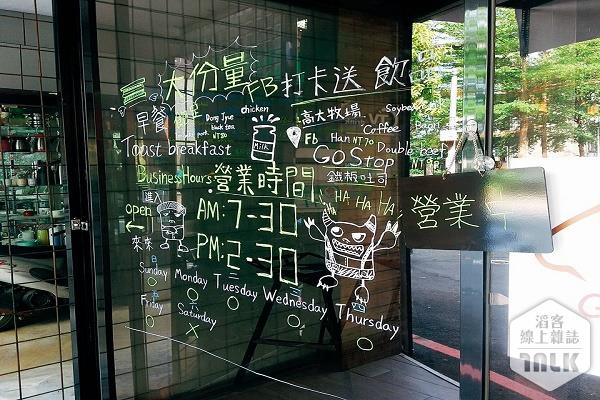 大份量 FB打卡送 飲
早餐
Dong Jyue
black tea
pork NT50
chicken
Milk
高大牧場
Fb
Soybean
Coffee
Ham NT70
Toast breakfast
GO Stop
Double beef
NT98
鐵板吐司
Business Hours 營業時間
進入
open
來來
AM:7-30
PM:2-30
HA HA HA
營業中
Sunday Monday Tuesday Wednesday Thursday
Friday Saturday
滔客
線上雜誌
TALK